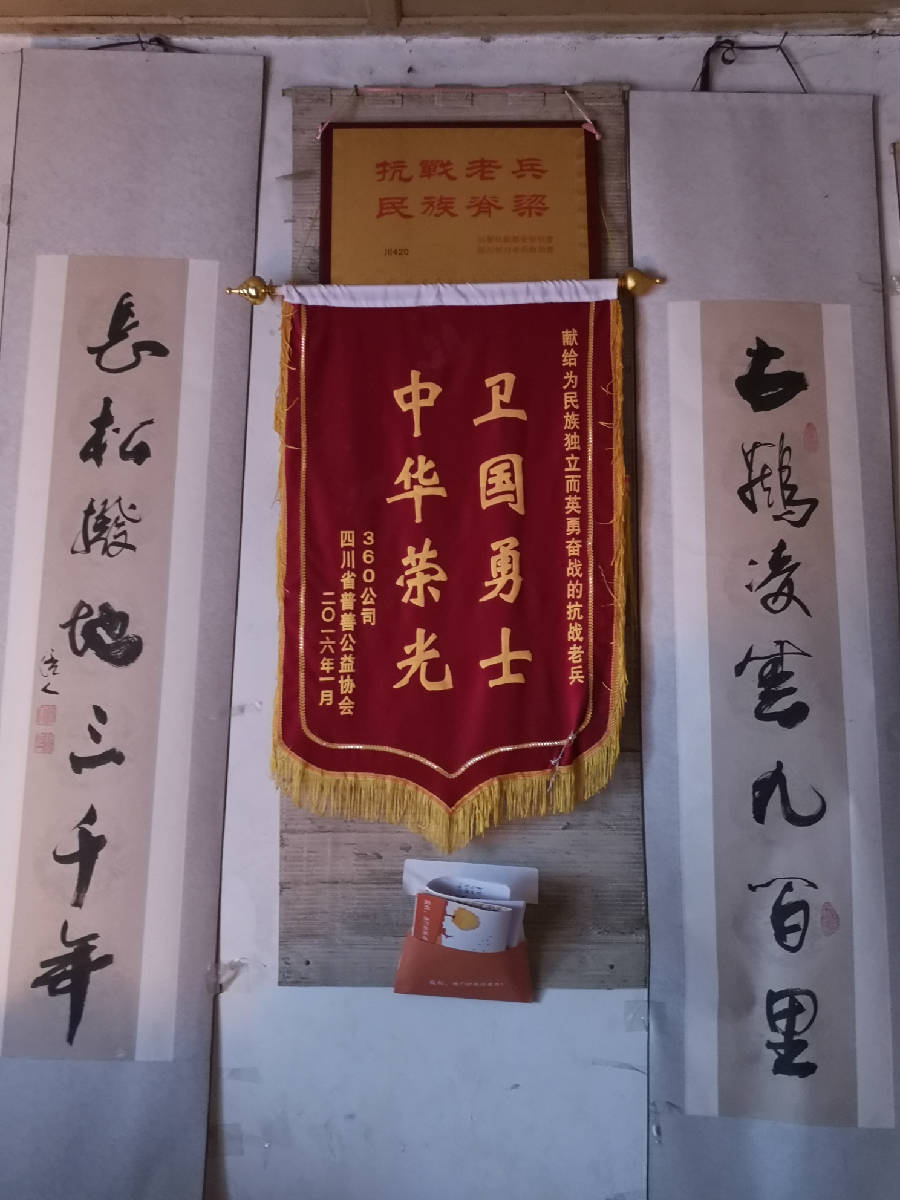 抗戰老兵
民族脊梁
川420
献给为民族独立而英勇奋战的抗战老兵
卫国勇士
中华荣光
360公司
四川省普善公益协会
二〇一六年一月
鹤凌云九百里
长松拨地三千年